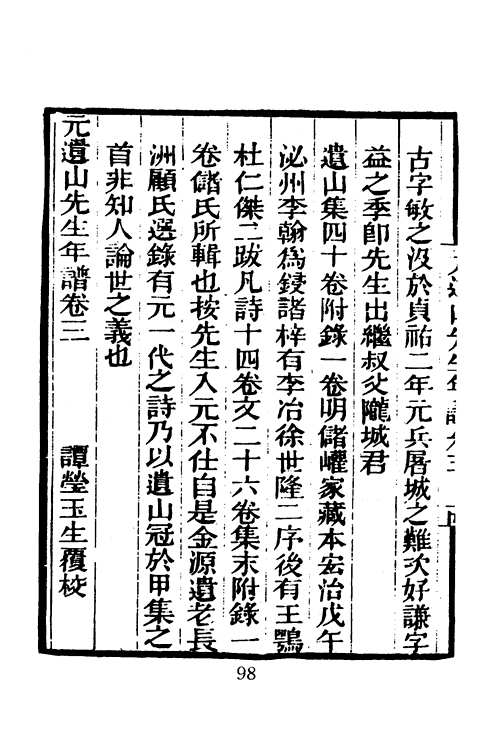 古字敏之沒於貞祐二年元兵屠城之難次好謙字
益之季卽先生出繼叔父隴城君
遺山集四十卷附錄一卷明儲巏家藏本宏治戊午
沁州李翰爲鋟諸梓有李冶徐世隆二序後有王鶚
杜仁傑二跋凡詩十四卷文二十六卷集末附錄一
卷儲氏所輯也按先生入元不仕自是金源遺老長
洲顧氏選錄有元一代之詩乃以遺山冠於甲集之
首非知人論世之義也
元遺山先生年譜卷三
譚瑩玉生覆校
98